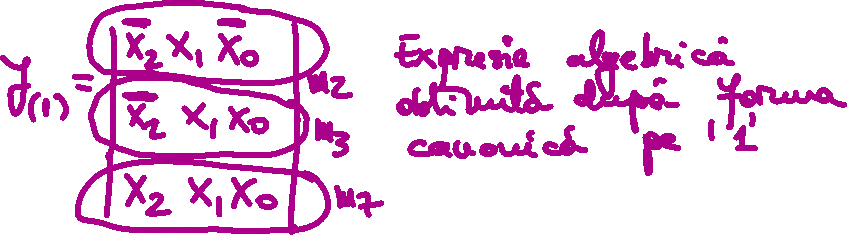 x̅₂ x₁ x̅₀ m₂
y₍₁₎ = x̅₂ x₁ x₀ m₃
x₂ x₁ x₀ m₇
Expresia algebrică
obținută după forma
canonică pe '1'